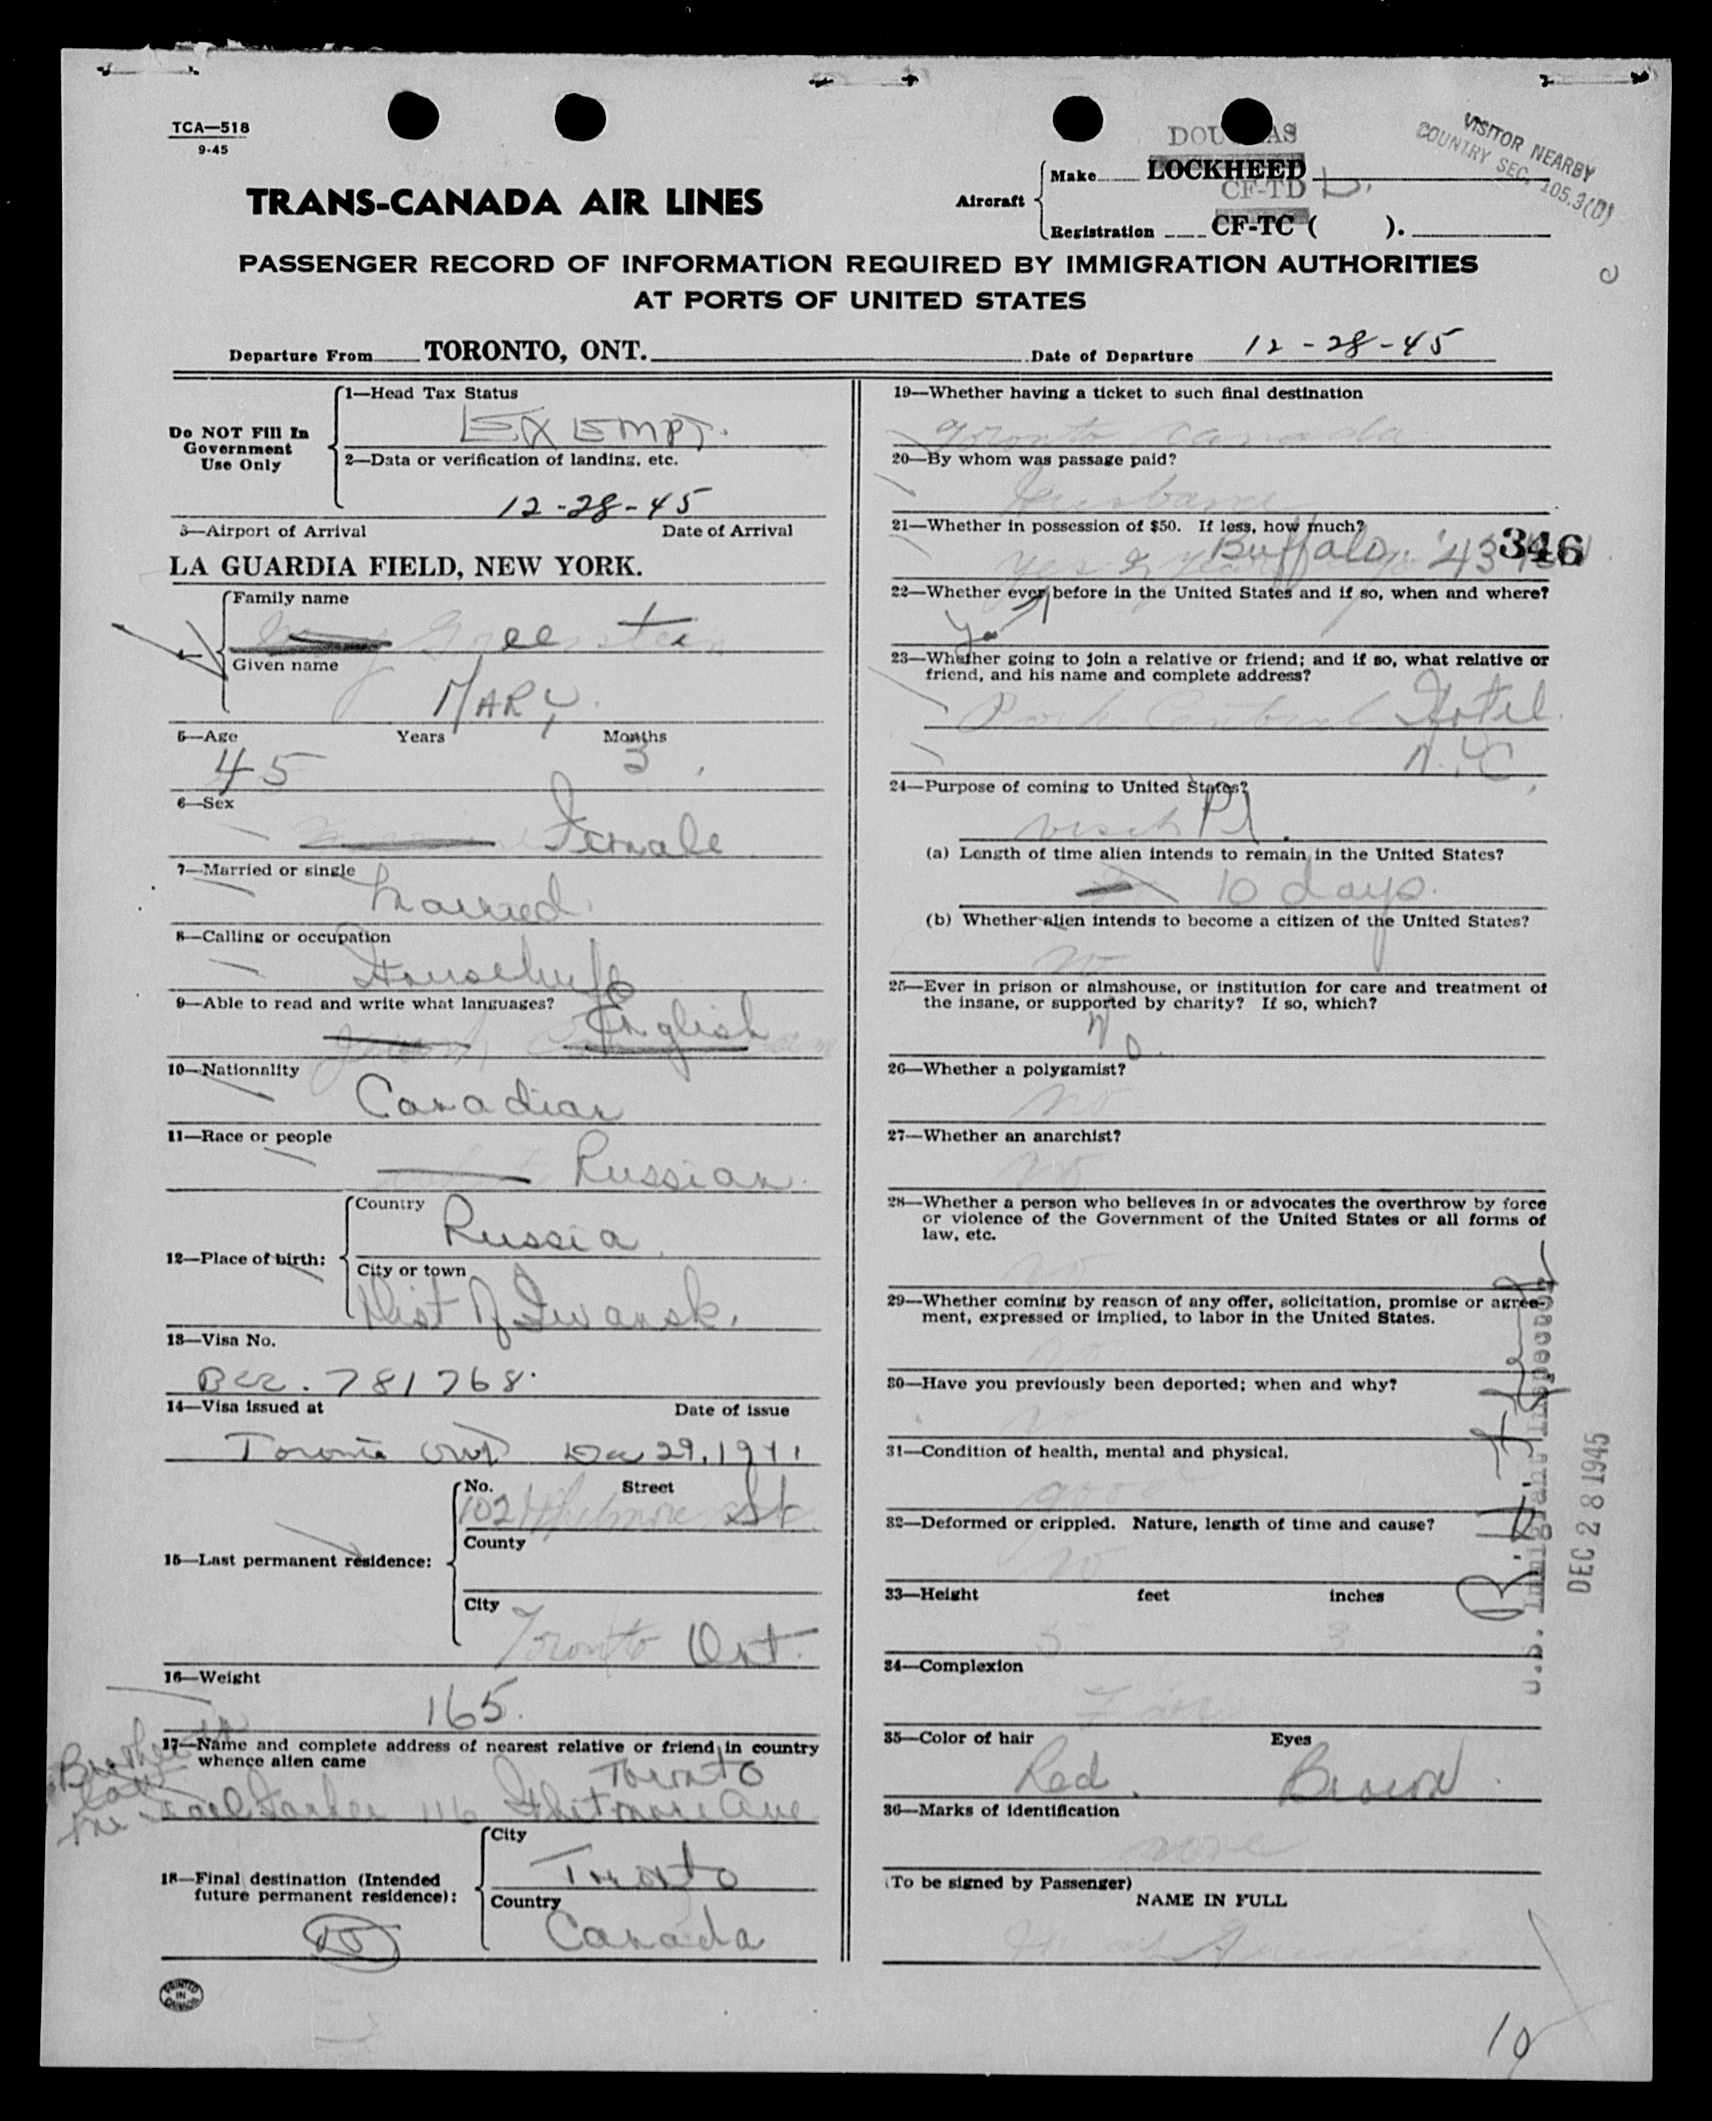 TCA—518
9-45
DOUGLAS
Make LOCKHEED
CF-TD L.
Aircraft
Registration CF-TC ( ).
VISITOR NEARBY
COUNTRY SEC. 105.3(D)
TRANS-CANADA AIR LINES
PASSENGER RECORD OF INFORMATION REQUIRED BY IMMIGRATION AUTHORITIES
AT PORTS OF UNITED STATES
Departure From TORONTO, ONT. Date of Departure 12-28-45
Do NOT Fill In
Government
Use Only
1—Head Tax Status
EXEMPT.
2—Data or verification of landing, etc.
12-28-45
3—Airport of Arrival Date of Arrival
LA GUARDIA FIELD, NEW YORK.
4—
Family name
Greenstein
Given name
MARY.
5—Age Years Months
45 3
6—Sex
Female
7—Married or single
Married
8—Calling or occupation
Housewife
9—Able to read and write what languages?
English
10—Nationality
Canadian
11—Race or people
Russian
12—Place of birth:
Country
Russia
City or town
Dist of Iwansk.
13—Visa No.
BCC. 781768.
14—Visa issued at Date of issue
Toronto Ont Dec 29, 1941
15—Last permanent residence:
No. Street
102 St.
County
City
Toronto Ont.
16—Weight
165.
17—Name and complete address of nearest relative or friend in country
whence alien came
Brother
law
Toronto
116 Whitmore Ave
18—Final destination (Intended
future permanent residence):
City
Toronto
Country
Canada
PRINTED
IN
CANADA
19—Whether having a ticket to such final destination
Toronto Canada
20—By whom was passage paid?
Husband
21—Whether in possession of $50. If less, how much?
Yes
Buffalo. '43
346
22—Whether ever before in the United States and if so, when and where?
Yes
23—Whether going to join a relative or friend; and if so, what relative or
friend, and his name and complete address?
Park Central Hotel
N.Y.C.
24—Purpose of coming to United States?
visit Pl.
(a) Length of time alien intends to remain in the United States?
10 days.
(b) Whether alien intends to become a citizen of the United States?
no
25—Ever in prison or almshouse, or institution for care and treatment of
the insane, or supported by charity? If so, which?
No.
26—Whether a polygamist?
no
27—Whether an anarchist?
no
28—Whether a person who believes in or advocates the overthrow by force
or violence of the Government of the United States or all forms of
law, etc.
no
29—Whether coming by reason of any offer, solicitation, promise or agree-
ment, expressed or implied, to labor in the United States.
no
30—Have you previously been deported; when and why?
no
31—Condition of health, mental and physical.
good
32—Deformed or crippled. Nature, length of time and cause?
no
33—Height feet inches
5 3
34—Complexion
Fair
35—Color of hair Eyes
Red. Brown
36—Marks of identification
none
(To be signed by Passenger)
NAME IN FULL
U.S. Immigrant Inspector
DEC 28 1945
10